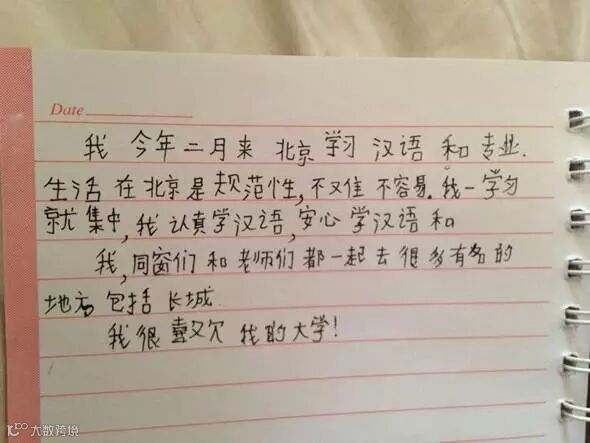 Date
我 今年二月来 北京 学习 汉语 和 专业.
生活 在 北京是 规范性, 不又佳 不容易. 我一学习
就 集中, 我 认真学汉语, 安心 学汉语 和
我, 同窗们 和 老师们 都一起 去 很多有名的
地方 包括 长城.
我 很 喜欢 我的大学!
大数跨境